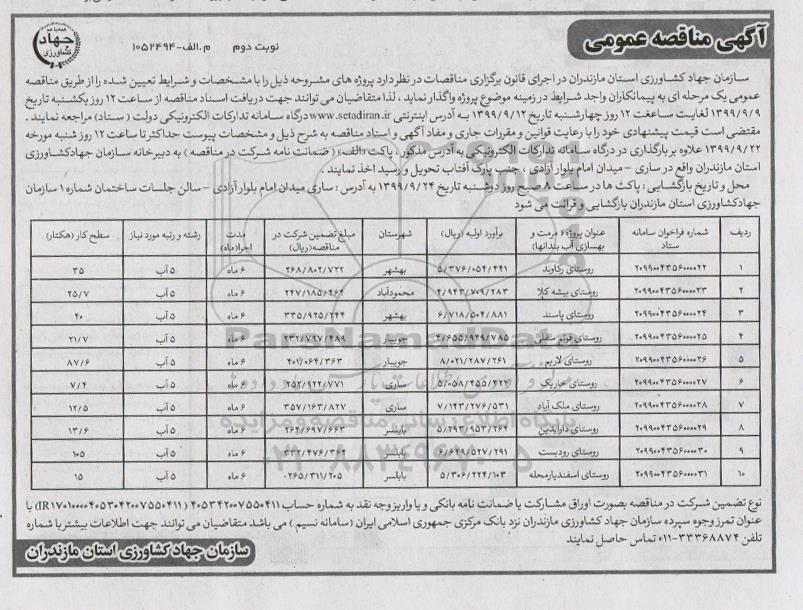 آگهی مناقصه عمومی
نوبت دوم م.الف-۱۰۵۲۴۹۴
همه با هم
جهاد
کشاورزی
سازمان جهاد کشاورزی استان مازندران در اجرای قانون برگزاری مناقصات در نظر دارد پروژه های مشروحه ذیل را با مشخصات و شرایط تعیین شده را از طریق مناقصه
عمومی یک مرحله ای به پیمانکاران واجد شرایط در زمینه موضوع پروژه واگذار نماید ، لذا متقاضیان می توانند جهت دریافت اسناد مناقصه از ساعت ۱۲ روز یکشنبه تاریخ
۱۳۹۹/۹/۹ لغایت ساعت ۱۲ روز چهارشنبه تاریخ ۱۳۹۹/۹/۱۲ به آدرس اینترنتی www.setadiran.ir درگاه سامانه تدارکات الکترونیکی دولت ( ستاد) مراجعه نمایند .
مقتضی است قیمت پیشنهادی خود را با رعایت قوانین و مقررات جاری و مفاد آگهی و اسناد مناقصه به شرح ذیل و مشخصات پیوست حداکثر تا ساعت ۱۲ روز شنبه مورخه
۱۳۹۹/۹/۲۲ علاوه بر بارگذاری در درگاه سامانه تدارکات الکترونیکی به آدرس مذکور ، پاکت «الف» ( ضمانت نامه شرکت در مناقصه ) به دبیرخانه سازمان جهادکشاورزی
استان مازندران واقع در ساری – میدان امام بلوار آزادی ، جنب پارک آفتاب تحویل و رسید اخذ نمایند .
محل و تاریخ بازگشایی : پاکت ها در ساعت ۸ صبح روز دوشنبه تاریخ ۱۳۹۹/۹/۲۴ به آدرس : ساری میدان امام بلوار آزادی – سالن جلسات ساختمان شماره ۱ سازمان
جهادکشاورزی استان مازندران بازگشایی و قرائت می شود
ردیف شماره فراخوان سامانه ستاد عنوان پروژه (مرمت و بهسازی آب بندانها) برآورد اولیه (ریال) شهرستان مبلغ تضمین شرکت در مناقصه(ریال) مدت اجرا(ماه) رشته و رتبه مورد نیاز سطح کار (هکتار)
۱ ۲۰۹۹۰۰۴۳۵۶۰۰۰۰۲۲ روستای رکاوند ۵/۳۷۶/۰۵۴/۴۴۱ بهشهر ۲۶۸/۸۰۲/۷۲۲ ۶ ماه ۵ آب ۳۵
۲ ۲۰۹۹۰۰۴۳۵۶۰۰۰۰۲۳ روستای بیشه کلا ۴/۹۴۳/۷۰۹/۲۸۳ محمودآباد ۲۴۷/۱۸۵/۴۶۴ ۶ ماه ۵ آب ۲۵/۷
۳ ۲۰۹۹۰۰۴۳۵۶۰۰۰۰۲۴ روستای پاسند ۶/۷۱۸/۵۰۴/۸۸۱ بهشهر ۳۳۵/۹۲۵/۲۴۴ ۶ ماه ۵ آب ۴۰
۴ ۲۰۹۹۰۰۴۳۵۶۰۰۰۰۲۵ روستای فوتم سفلی ۴/۶۵۵/۹۴۹/۷۸۵ جویبار ۲۳۲/۷۹۷/۴۸۹ ۶ ماه ۵ آب ۲۱/۷
۵ ۲۰۹۹۰۰۴۳۵۶۰۰۰۰۲۶ روستای لاریم ۸/۰۲۱/۲۸۷/۲۶۱ جویبار ۴۰۱/۰۶۴/۳۶۳ ۶ ماه ۵ آب ۸۷/۶
۶ ۲۰۹۹۰۰۴۳۵۶۰۰۰۰۲۷ روستای خاریک ۵/۰۵۸/۴۵۵/۴۲۲ ساری ۲۵۲/۹۲۲/۷۷۱ ۶ ماه ۵ آب ۷/۴
۷ ۲۰۹۹۰۰۴۳۵۶۰۰۰۰۲۸ روستای ملک آباد ۷/۱۴۳/۲۷۶/۵۳۱ ساری ۳۵۷/۱۶۳/۸۲۷ ۶ ماه ۵ آب ۱۲/۵
۸ ۲۰۹۹۰۰۴۳۵۶۰۰۰۰۲۹ روستای دارابدین ۵/۲۹۳/۹۵۳/۲۶۴ بابلسر ۲۶۴/۶۹۷/۶۶۳ ۶ ماه ۵ آب ۱۳/۶
۹ ۲۰۹۹۰۰۴۳۵۶۰۰۰۰۳۰ روستای رودبست ۶/۶۴۹/۵۲۷/۲۹۱ بابلسر ۳۳۲/۴۷۶/۳۶۴ ۶ ماه ۵ آب ۱۰۵
۱۰ ۲۰۹۹۰۰۴۳۵۶۰۰۰۰۳۱ روستای اسفندیارمحله ۵/۳۰۶/۲۲۴/۱۰۳ بابلسر ۲۶۵/۳۱۱/۲۰۵ ۶ ماه ۵ آب ۱۵
نوع تضمین شرکت در مناقصه بصورت اوراق مشارکت یا ضمانت نامه بانکی و یا واریز وجه نقد به شماره حساب ۴۰۵۳۴۲۰۰۷۵۵۰۴۱۱ (IR۱۷۰۱۰۰۰۰۴۰۵۳۰۴۲۰۰۷۵۵۰۴۱۱) با
عنوان تمرز وجوه سپرده سازمان جهاد کشاورزی مازندران نزد بانک مرکزی جمهوری اسلامی ایران (سامانه نسیم ) می باشد متقاضیان می توانند جهت اطلاعات بیشتر با شماره
تلفن ۳۳۳۶۸۸۷۴-۰۱۱ تماس حاصل نمایند
سازمان جهاد کشاورزی استان مازندران
ParsNamadData
پایگاه اطلاع رسانی مناقصه و مزایده
۰۲۱-۸۸۳۴۹۶۷۰-۵